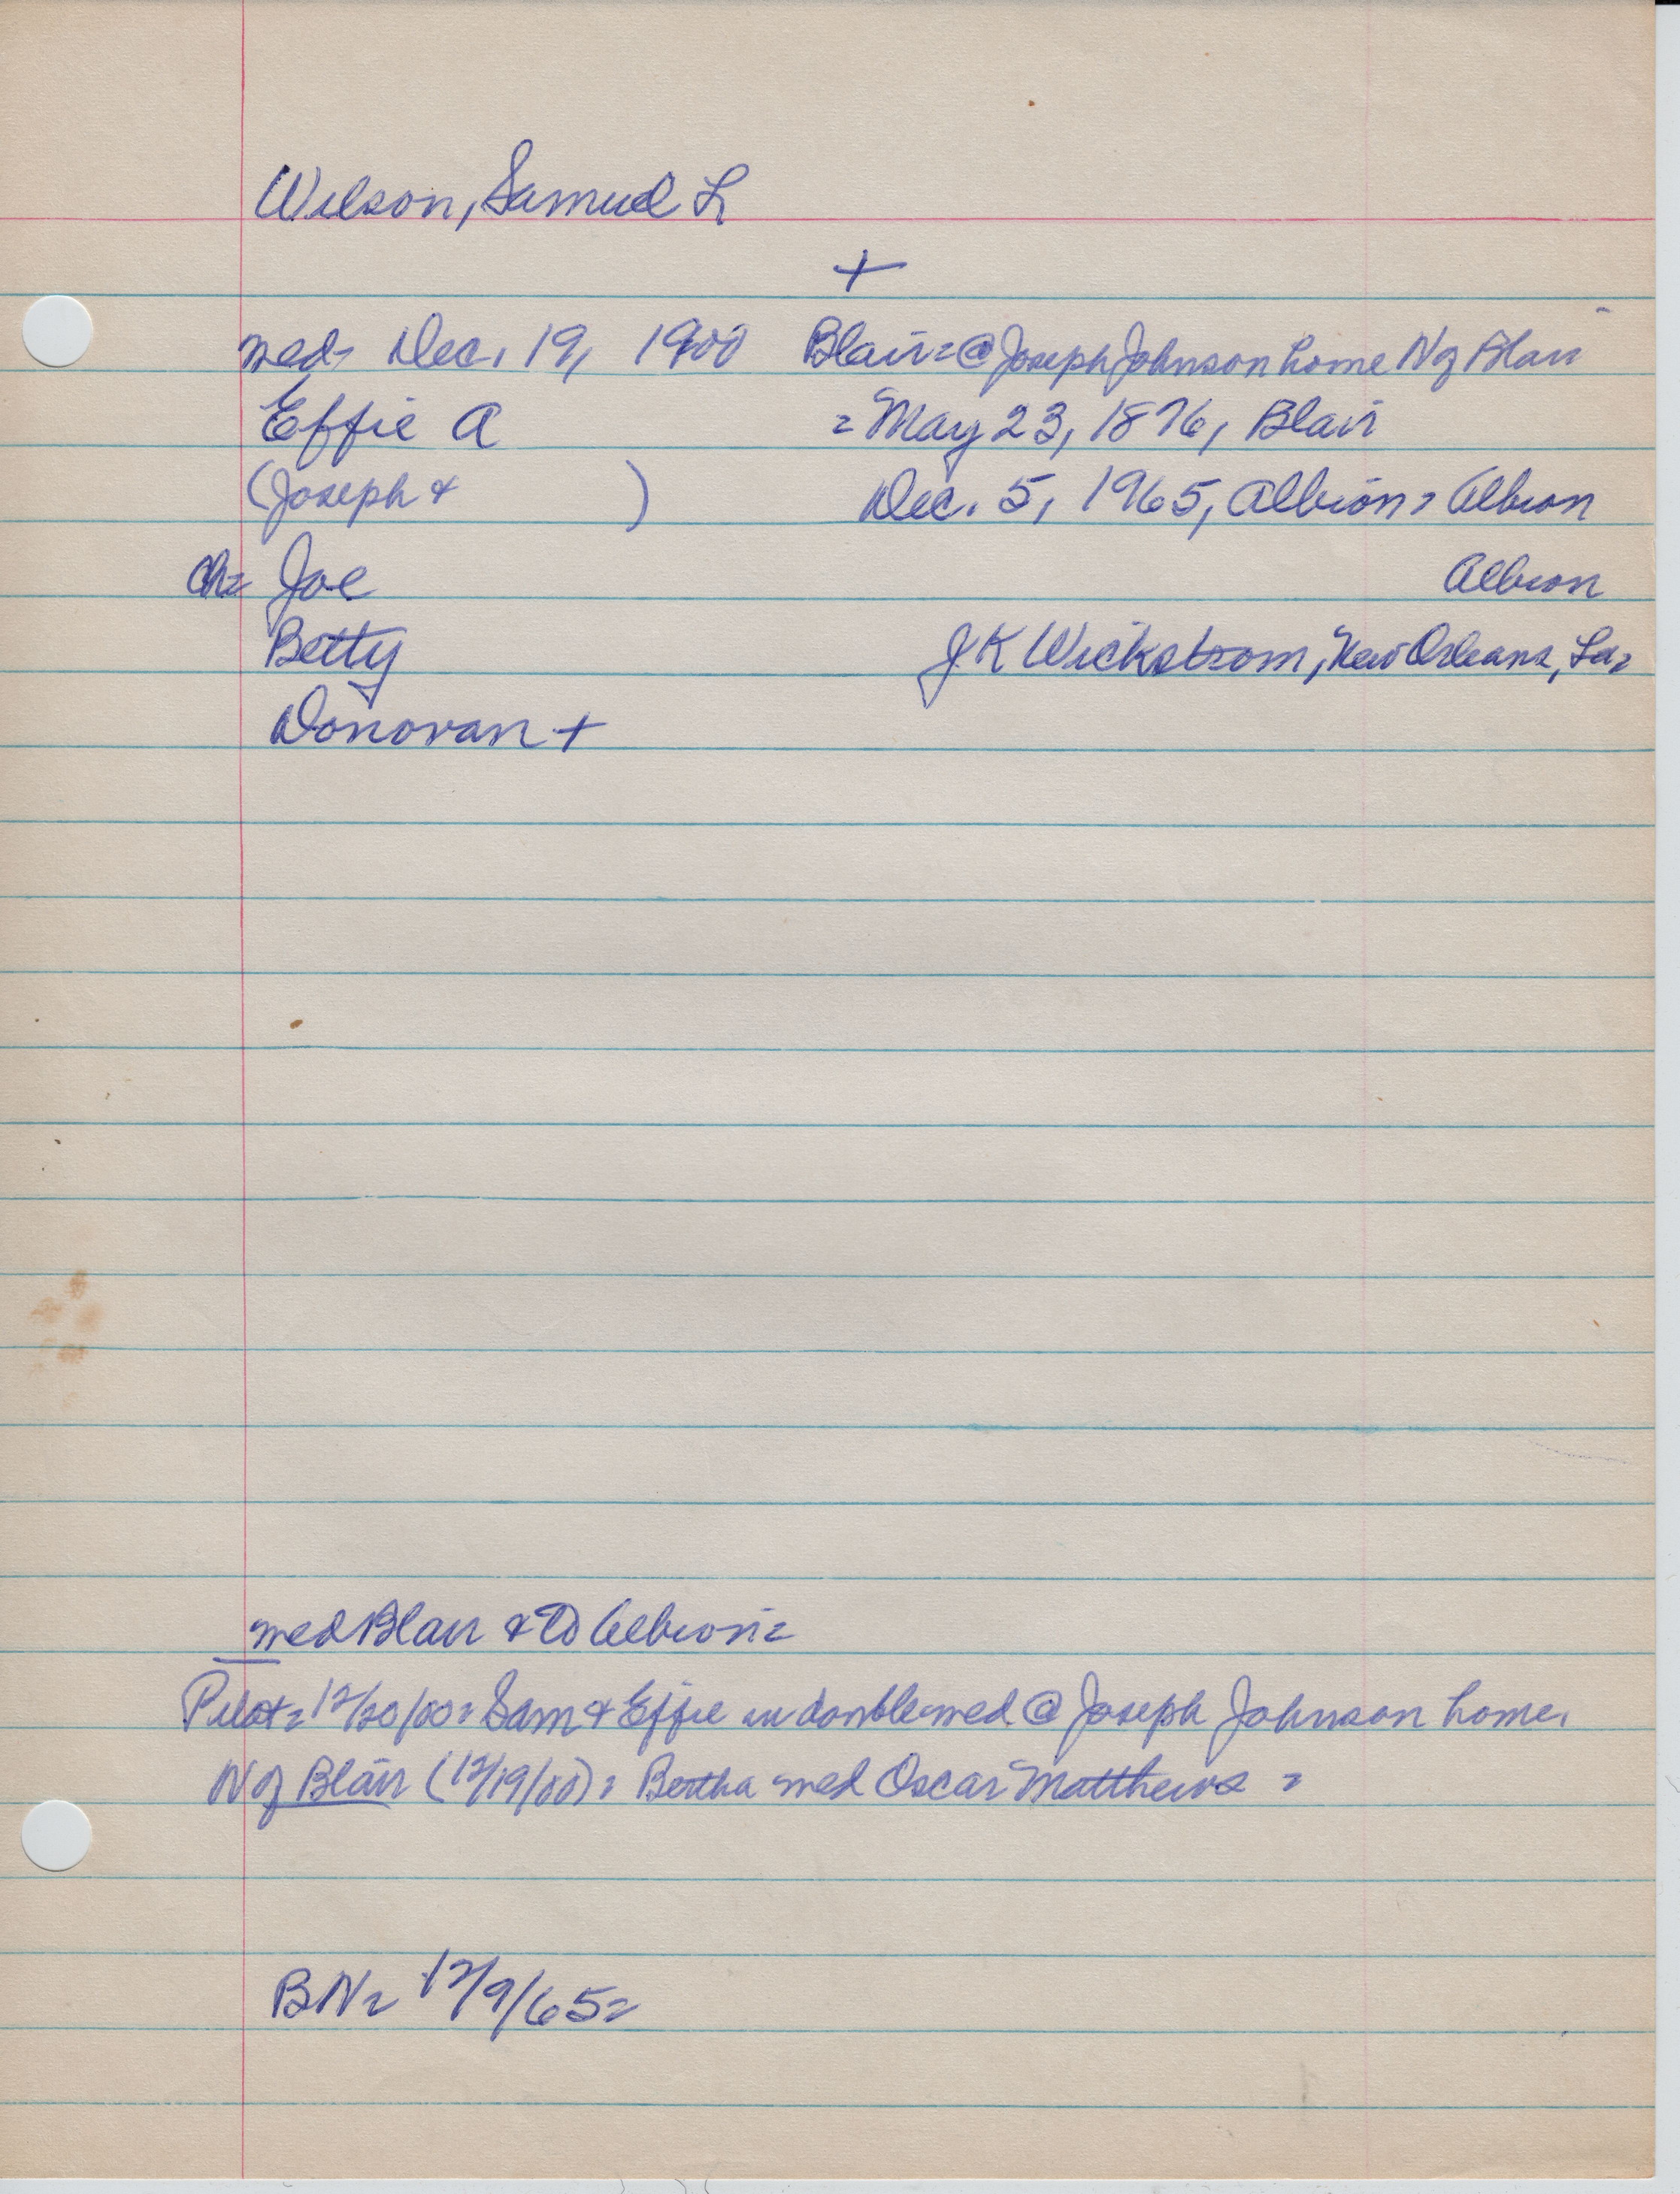 Wilson, Samuel L
+
med- Dec. 19, 1900 Blair= @ Joseph Johnson home N of Blair
Effie A = May 23, 1876, Blair
(Joseph & ) Dec. 5, 1965, Albion = Albion
ch= Joe Albion
Betty J K Wickstrom, New Orleans, La=
Donovan +
med Blair & to Albion=
Pilot= 12/20/00= Sam & Effie in double med @ Joseph Johnson home,
N of Blair (12/19/00)= Bertha med Oscar Matthews =
BN= 12/9/65=